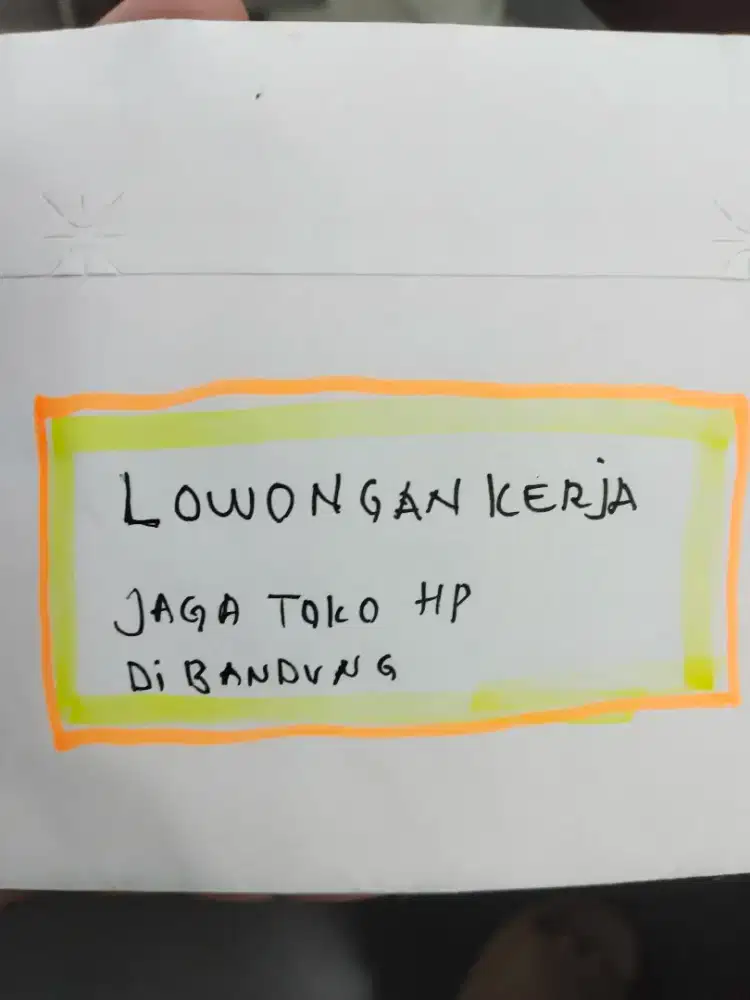 LOWONGAN KERJA
JAGA TOKO HP
Di BANDUNG